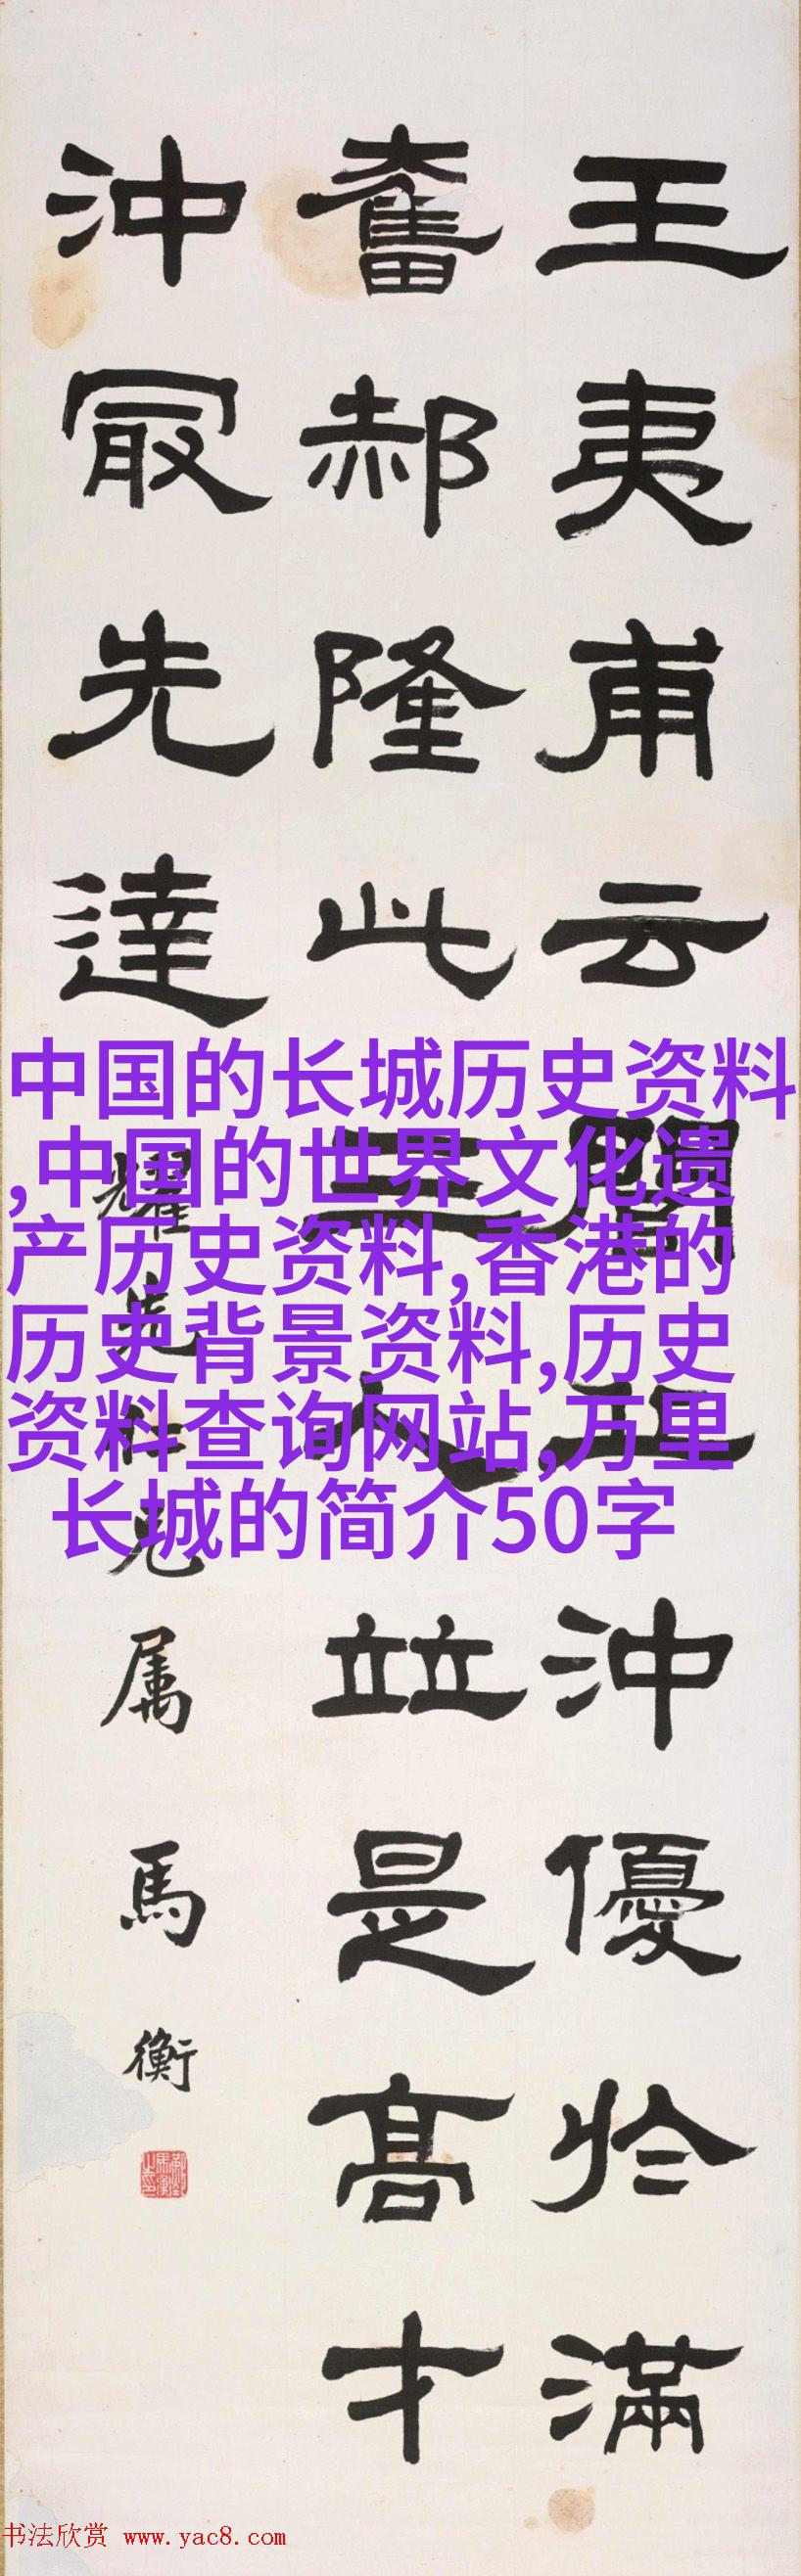 王夷甫云閭丘沖優於滿
奮郝隆此三人竝是髙才
沖冣先達
耀先仁兄属 馬衡
中国的长城历史资料
,中国的世界文化遗
产历史资料,香港的
历史背景资料,历史
资料查询网站,万里
长城的简介50字
书法欣赏 www.yac8.com